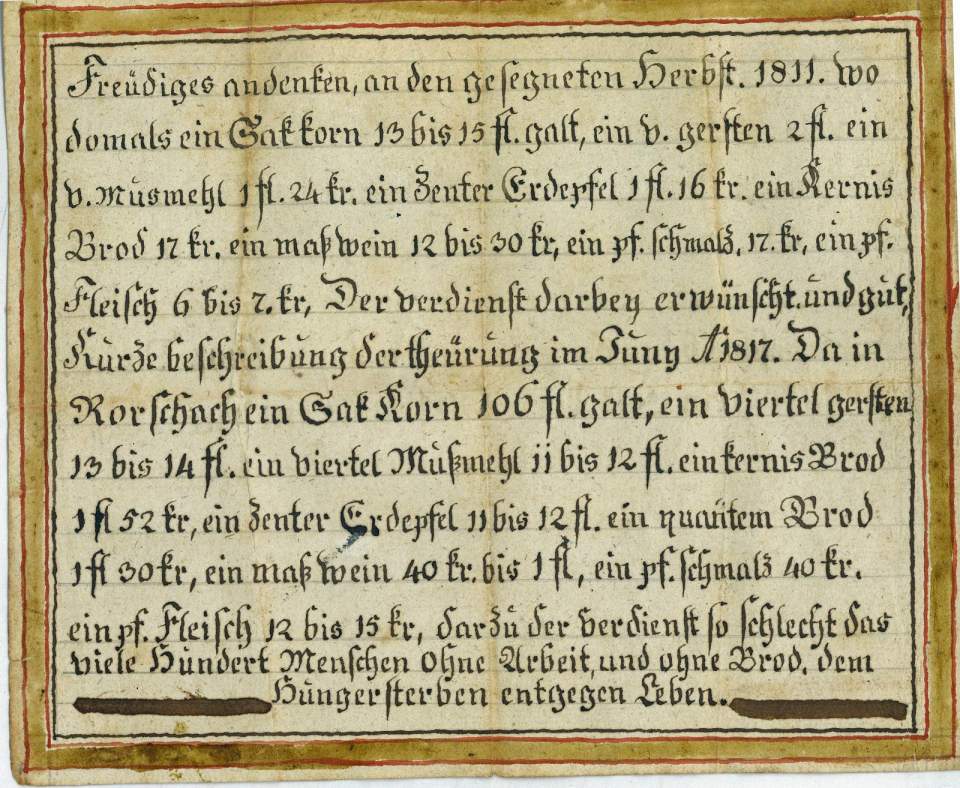 Freüdiges andenken, an den gesegneten Herbst. 1811. wo
domals ein Sak korn 13 bis 15 fl. galt, ein v. gersten 2 fl. ein
v. müsmehl 1 fl. 24 kr. ein Zenter Erdepfel 1 fl. 16 kr. ein Kernis
Brod 17 kr. ein maß wein 12 bis 30 kr, ein pf. schmalz. 17. kr, ein pf.
Fleisch 6 bis 7. kr, Der verdienst darbey erwünscht. und gut,
Kurze beschreibung der theürung im Juny A° 1817. Da in
Rorschach ein Sak Korn 106 fl. galt, ein viertel gersten
13 bis 14 fl. ein viertel Müßmehl 11 bis 12 fl. ein kernis Brod
1 fl 52 kr, ein Zenter Erdepfel 11 bis 12 fl. ein quaütem Brod
1 fl 30 kr, ein maß wein 40 kr. bis 1 fl, ein pf. schmalz 40 kr.
ein pf. Fleisch 12 bis 15 kr, darzu der verdienst so schlecht das
viele Hundert Menschen ohne Arbeit, und ohne Brod, dem
Hungersterben entgegen Leben.